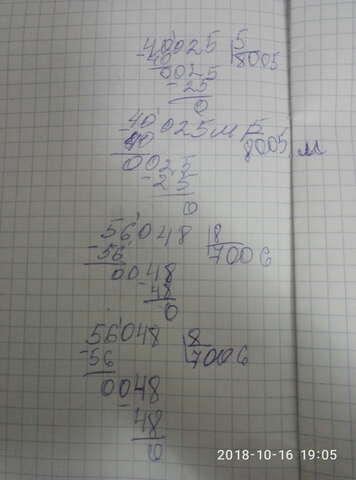 40025 5
40 8005
0025
-25
0
40025м 5
40 8005 м
0025
-25
0
56048 8
-56 7006
0048
-48
0
56048 8
-56 7006
0048
-48
0
2018-10-16 19:05